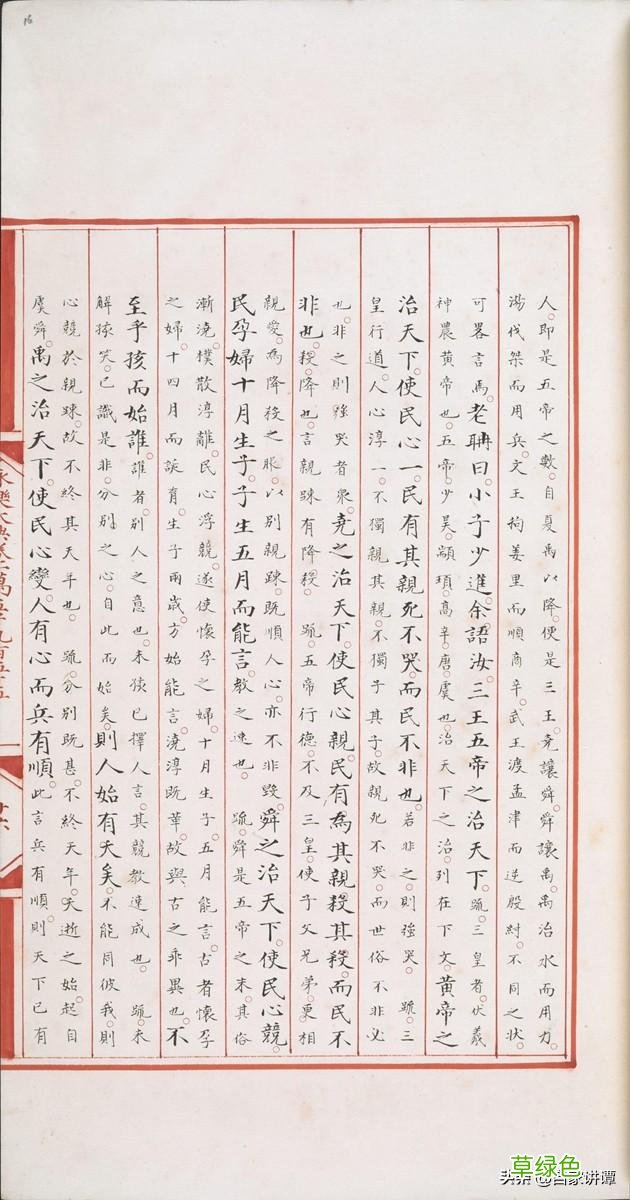 16
人。即是五帝之數。自夏禹以降。便是三王。堯讓舜。舜讓禹。禹治水而用力。
湯伐桀而用兵。文王拘羑里而順商辛。武王渡孟津而逆殷紂。不同之狀。
可畧言焉。老聃曰。小子少進。余語汝三王五帝之治天下。疏。三皇者。伏羲
神農黃帝也。五帝。少昊。顓頊。高辛。唐。虞也。治天下之治。列在下文。黃帝之
治天下。使民心一。民有其親死不哭。而民不非也。若非之。則強哭。疏。三
皇行道。人心淳一。不獨親其親。不獨子其子。故親死不哭。而世俗不非。必
也。非之則強哭者衆。堯之治天下。使民心親。民有為其親殺其殺。而民不
非也。殺。降也。言親踈有降殺。疏。五帝行德。不及三皇。使子父兄弟。更相
親愛。為降殺之服。以別親踈。既順人心。亦不非毀。舜之治天下。使民心競。
民孕婦十月生子。子生五月而能言。教之速也。疏。舜是五帝之末。其俗
漸澆。樸散淳離。民心浮競。遂使懷孕之婦。十月生子。五月能言。古者懷孕
之婦。十四月而誕育。生子兩歲。方始能言。澆淳既革。故與古之乖異也。不
至乎孩而始誰。誰者。別人之意也。未孩已擇人言。其競教速成也。疏。未
解孩笑。已識是非。分別之心。自此而始矣。則人始有夭矣。不能同彼我。則
心競於親踈。故不終其天年也。疏。分別既甚。不終天年。夭逝之始。起自
虞舜。禹之治天下。使民心變。人有心而兵有順。此言兵有順。則天下已有
永樂大典卷一萬五千九百五十五
草绿色
头条 @百家讲谭